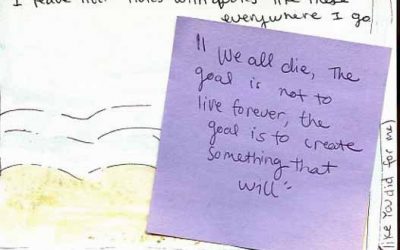 I leave little notes with quotes like these
everywhere I go
"We all die, The
goal is not to
live forever, the
goal is to create
something that
will"
(like You did for me)